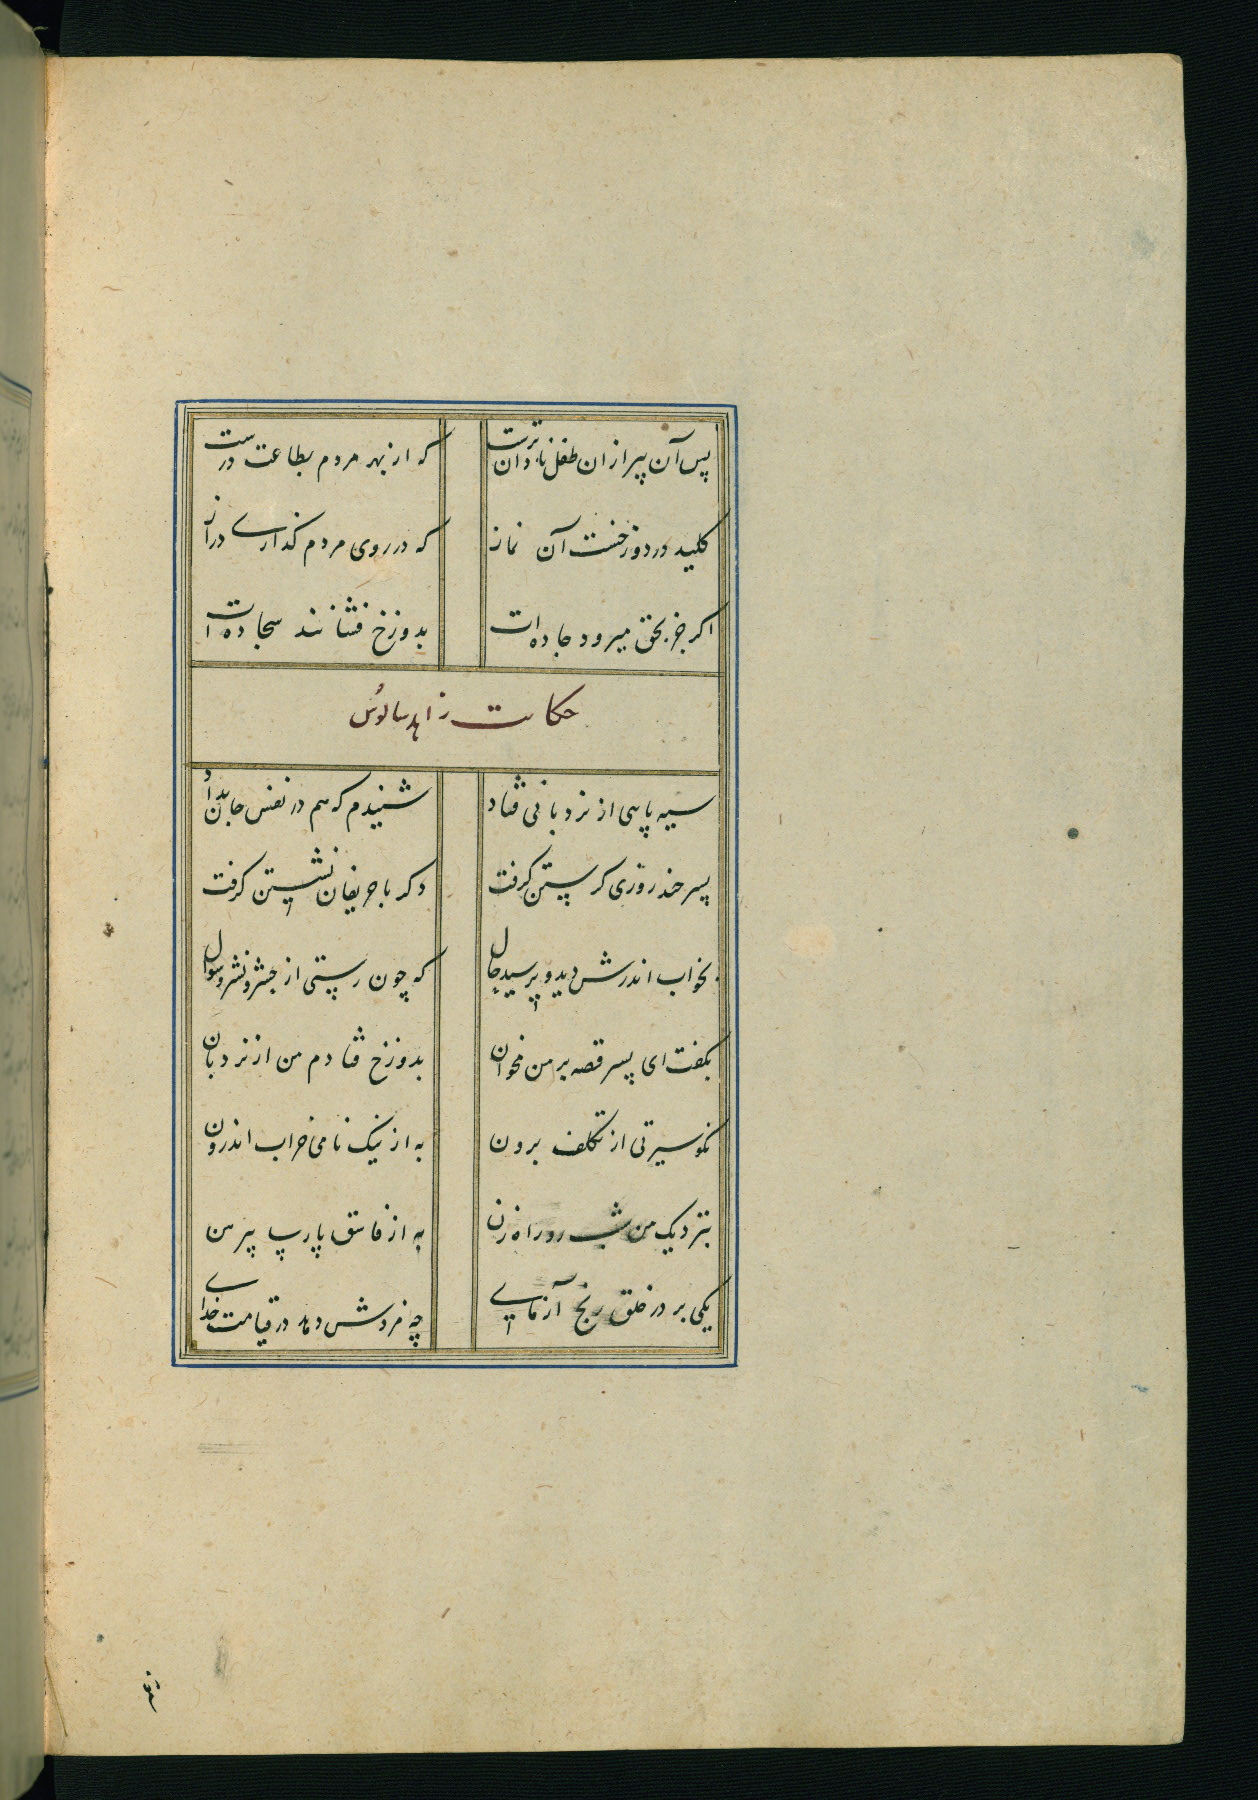 پس آن پیر ازان طفل نادان ترست که از بهر مردم بطاعت درست
کلید در دوزخست آن نماز که در روی مردم گذاری دراز
اگر جز بحق میرود جاده ات بدوزخ فشانند سجاده ات
حکایت زاهد سالوس
سیه پاهی از نردبانی فتاد شنیدم که هم در نفس جان بداد
پسر چند روزی گرستن گرفت دگر با حریفان نشستن گرفت
بخواب اندرش دید و پرسید حال که چون رستی از حشر و نشر و سوال
بگفت ای پسر قصه بر من مخوان بدوزخ فتادم من از نردبان
نکو سیرتی از تکلف برون به از نیک نامی خراب اندرون
بنزدیک من شب رو راه زن به از فاسق پارسا پیرهن
یکی بر در خلق رنج آزمای چه مزدش دهد در قیامت خدای